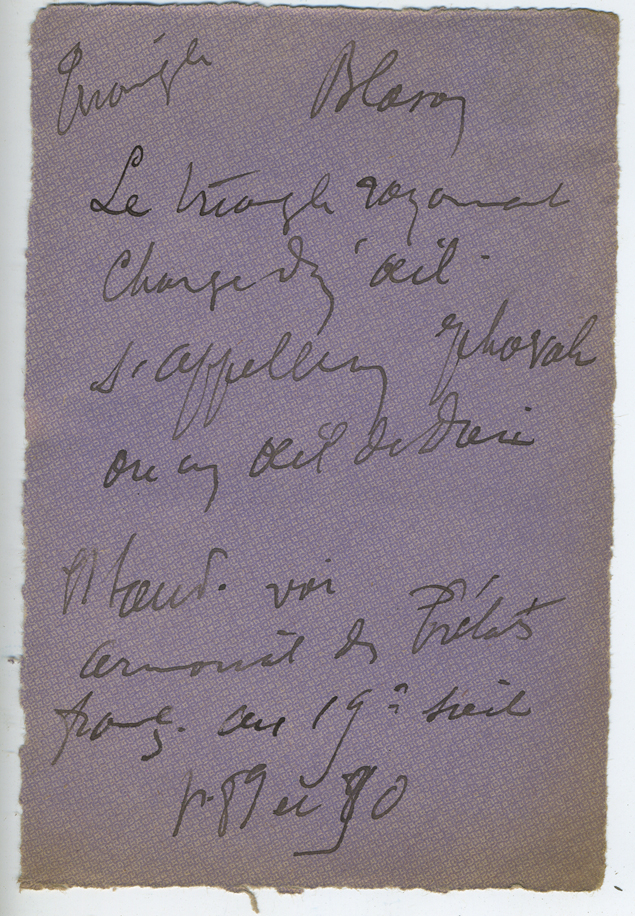 Triangle Blason
Le triangle rayonnant
chargé d'un œil
s'appelle un Jéhovah
ou un œil de Dieu
voir
armorial des Prélats
franç. au 19e siècle
p. 89 et 90